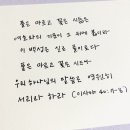 풀은 마르고 꽃은 시듦은
여호와의 기운이 그 위에 붊이라
이 백성은 실로 풀이로다
풀은 마르고 꽃은 시드나
우리 하나님의 말씀은 영원히
서리라 하라 (이사야 40:7-8)